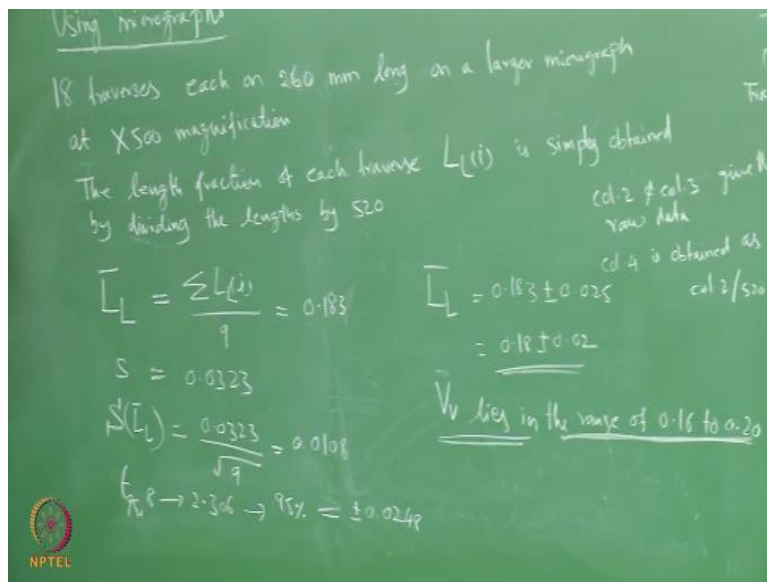 Using micrographs
18 traverses each on 260 mm long on a larger micrograph
at X500 magnification
Tra
The length fraction of each traverse L_L(i) is simply obtained
by dividing the lengths by 520
col.2 & col.3 give
raw data
col.4 is obtained as
col.2/520
L̄_L = ΣL_L(i)/9 = 0.183
S = 0.0323
S(L̄_L) = 0.0323/√9 = 0.0108
8 → 2.306 → 95% = ±0.0248
L̄_L = 0.183 ± 0.025
= 0.18 ± 0.02
V_V lies in the range of 0.16 to 0.20
NPTEL